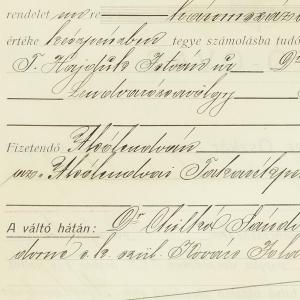 rendelet on re Háromszáz
értéke készpénzben tegye számolásba tudó
T. Hajduk István úr Dr
Lendvarozsavölgy
Fizetendő Alsólendván
az Alsólendvai Takarékpé
A váltó hátán: Dr Csillká Sándo
dorné s.k. szül. Kovács Jola